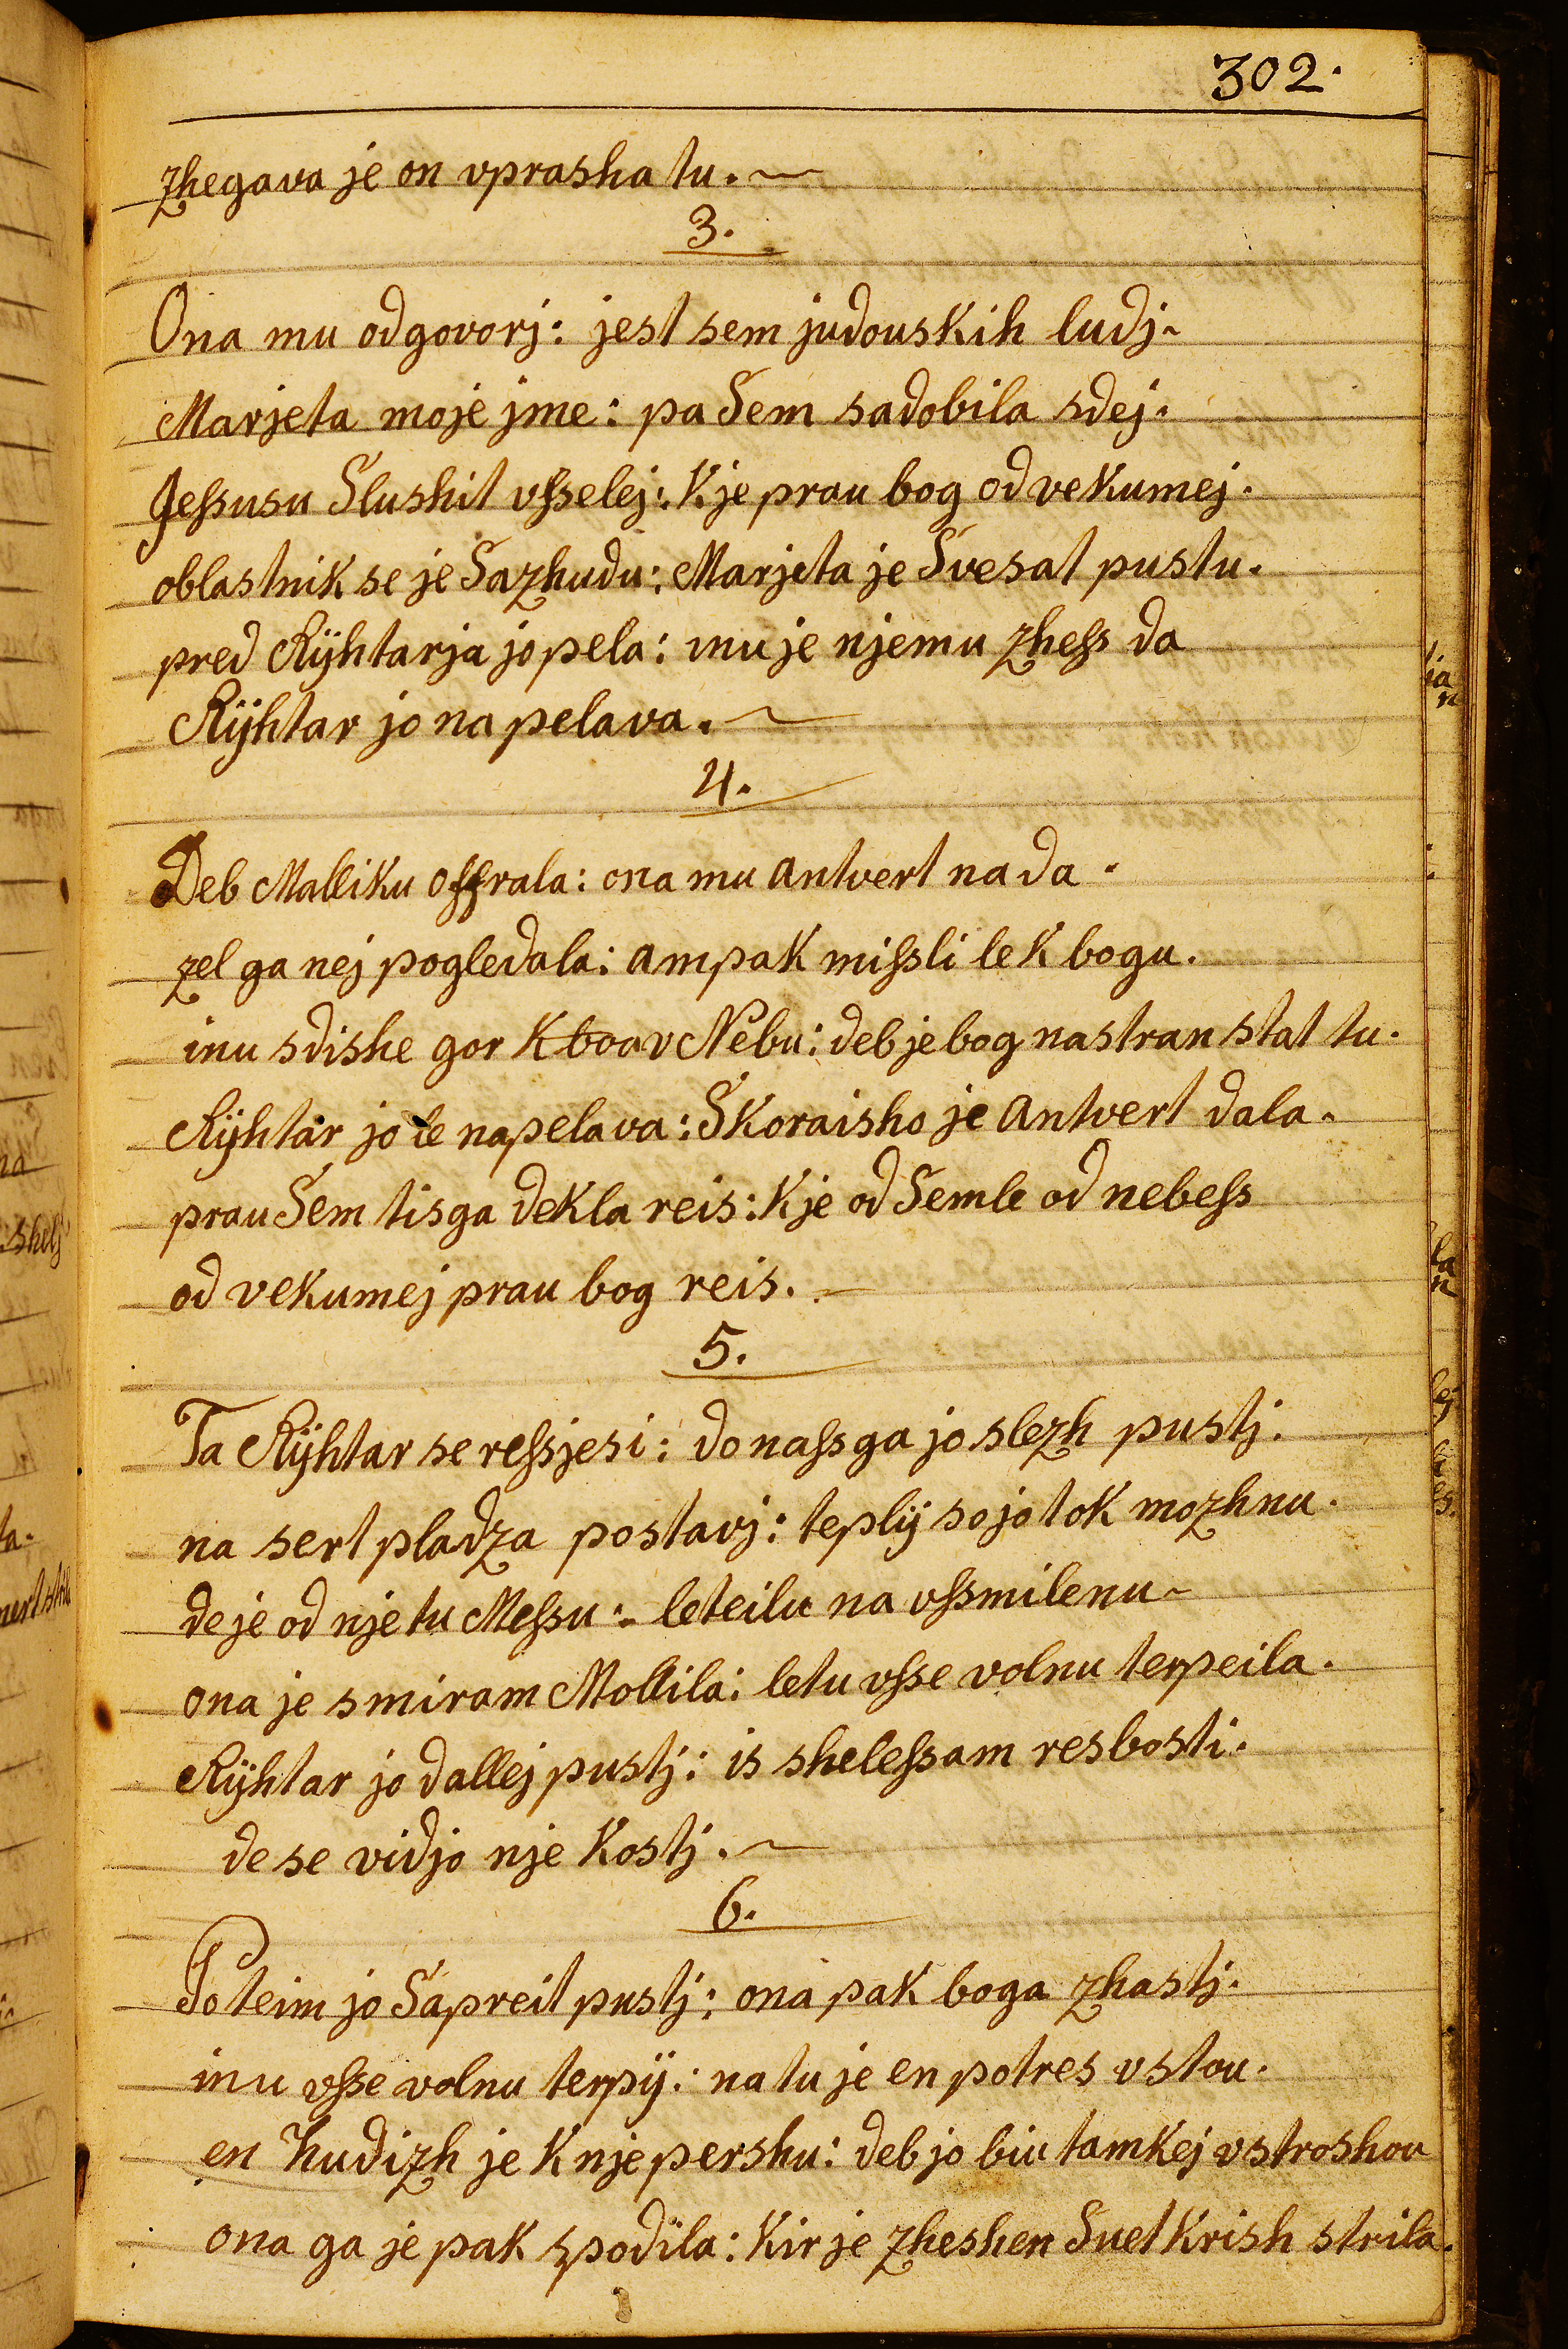 302.
zhegava je on vprasha tu.
3.
Ona mu odgovorj: jest sem judouskih ludj.
Marjeta moje jme: pa Sem sadobila sdej.
Jessusu Slushit vsselej: Kje prau bog od vekumej.
oblastnik se je Sazhudu: Marjeta je Svesat pustu.
pred Rÿhtarja jo pela: inu je njemu zhess da
Rÿhtar jo na pelava.
4.
Deb Malliku offrala: ona mu antvert na da.
zel ga nej pogledala: ampak missli le K bogu.
inu sdishe gor K boa v Nebu: deb je bog na stran stat tu.
Rÿhtar jo le napelava: Skoraisho je antvert dala.
prau Sem tisga deKla reis: Kje od Semle od nebess
od vekumej prau bog reis.
5.
Ta Rÿhtar se ressjesi: do nass ga jo slezh pustj.
na sert pladza postavj: teplÿ so jo tok mozhnu.
de je od nje tu Messu: leteilu na vssmilenu
ona je smiram Mollila: letu vsse volnu terpeila.
Rÿhtar jo dallej pustj: is shelessam resbosti.
de se vidjo nje Kostj.
6.
Po teim jo Sapreit pustj: ona pak boga zhastj.
inu vsse volnu terpÿ: na tu je en potres vstou.
en hudizh je K nje pershu: deb jo biu tamkej vstroshou
ona ga je pak spodila: Kir je zheshen Suet Krish strila.